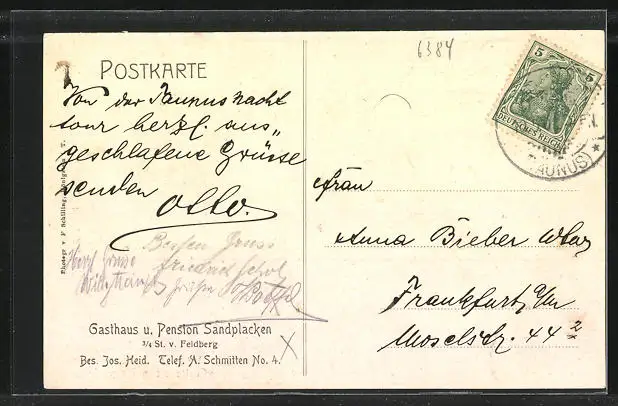 6384
POSTKARTE
5 5
DEUTSCHES REICH
(TAUNUS) *
Von der Taunusnacht
tour herzl. aus„
geschlafene Grüsse
senden
Otto.
Frau
Anna Bieber Wtw
Frankfurt a/M
Moselstr. 44 2
Besten Gruss
Friedrich
Herzl Grüsse
Photogr. v. F. Schilling, Königstein i. T.
Gasthaus u. Pension Sandplacken
3/4 St. v. Feldberg
Bes. Jos. Heid. Telef. A. Schmitten No. 4.